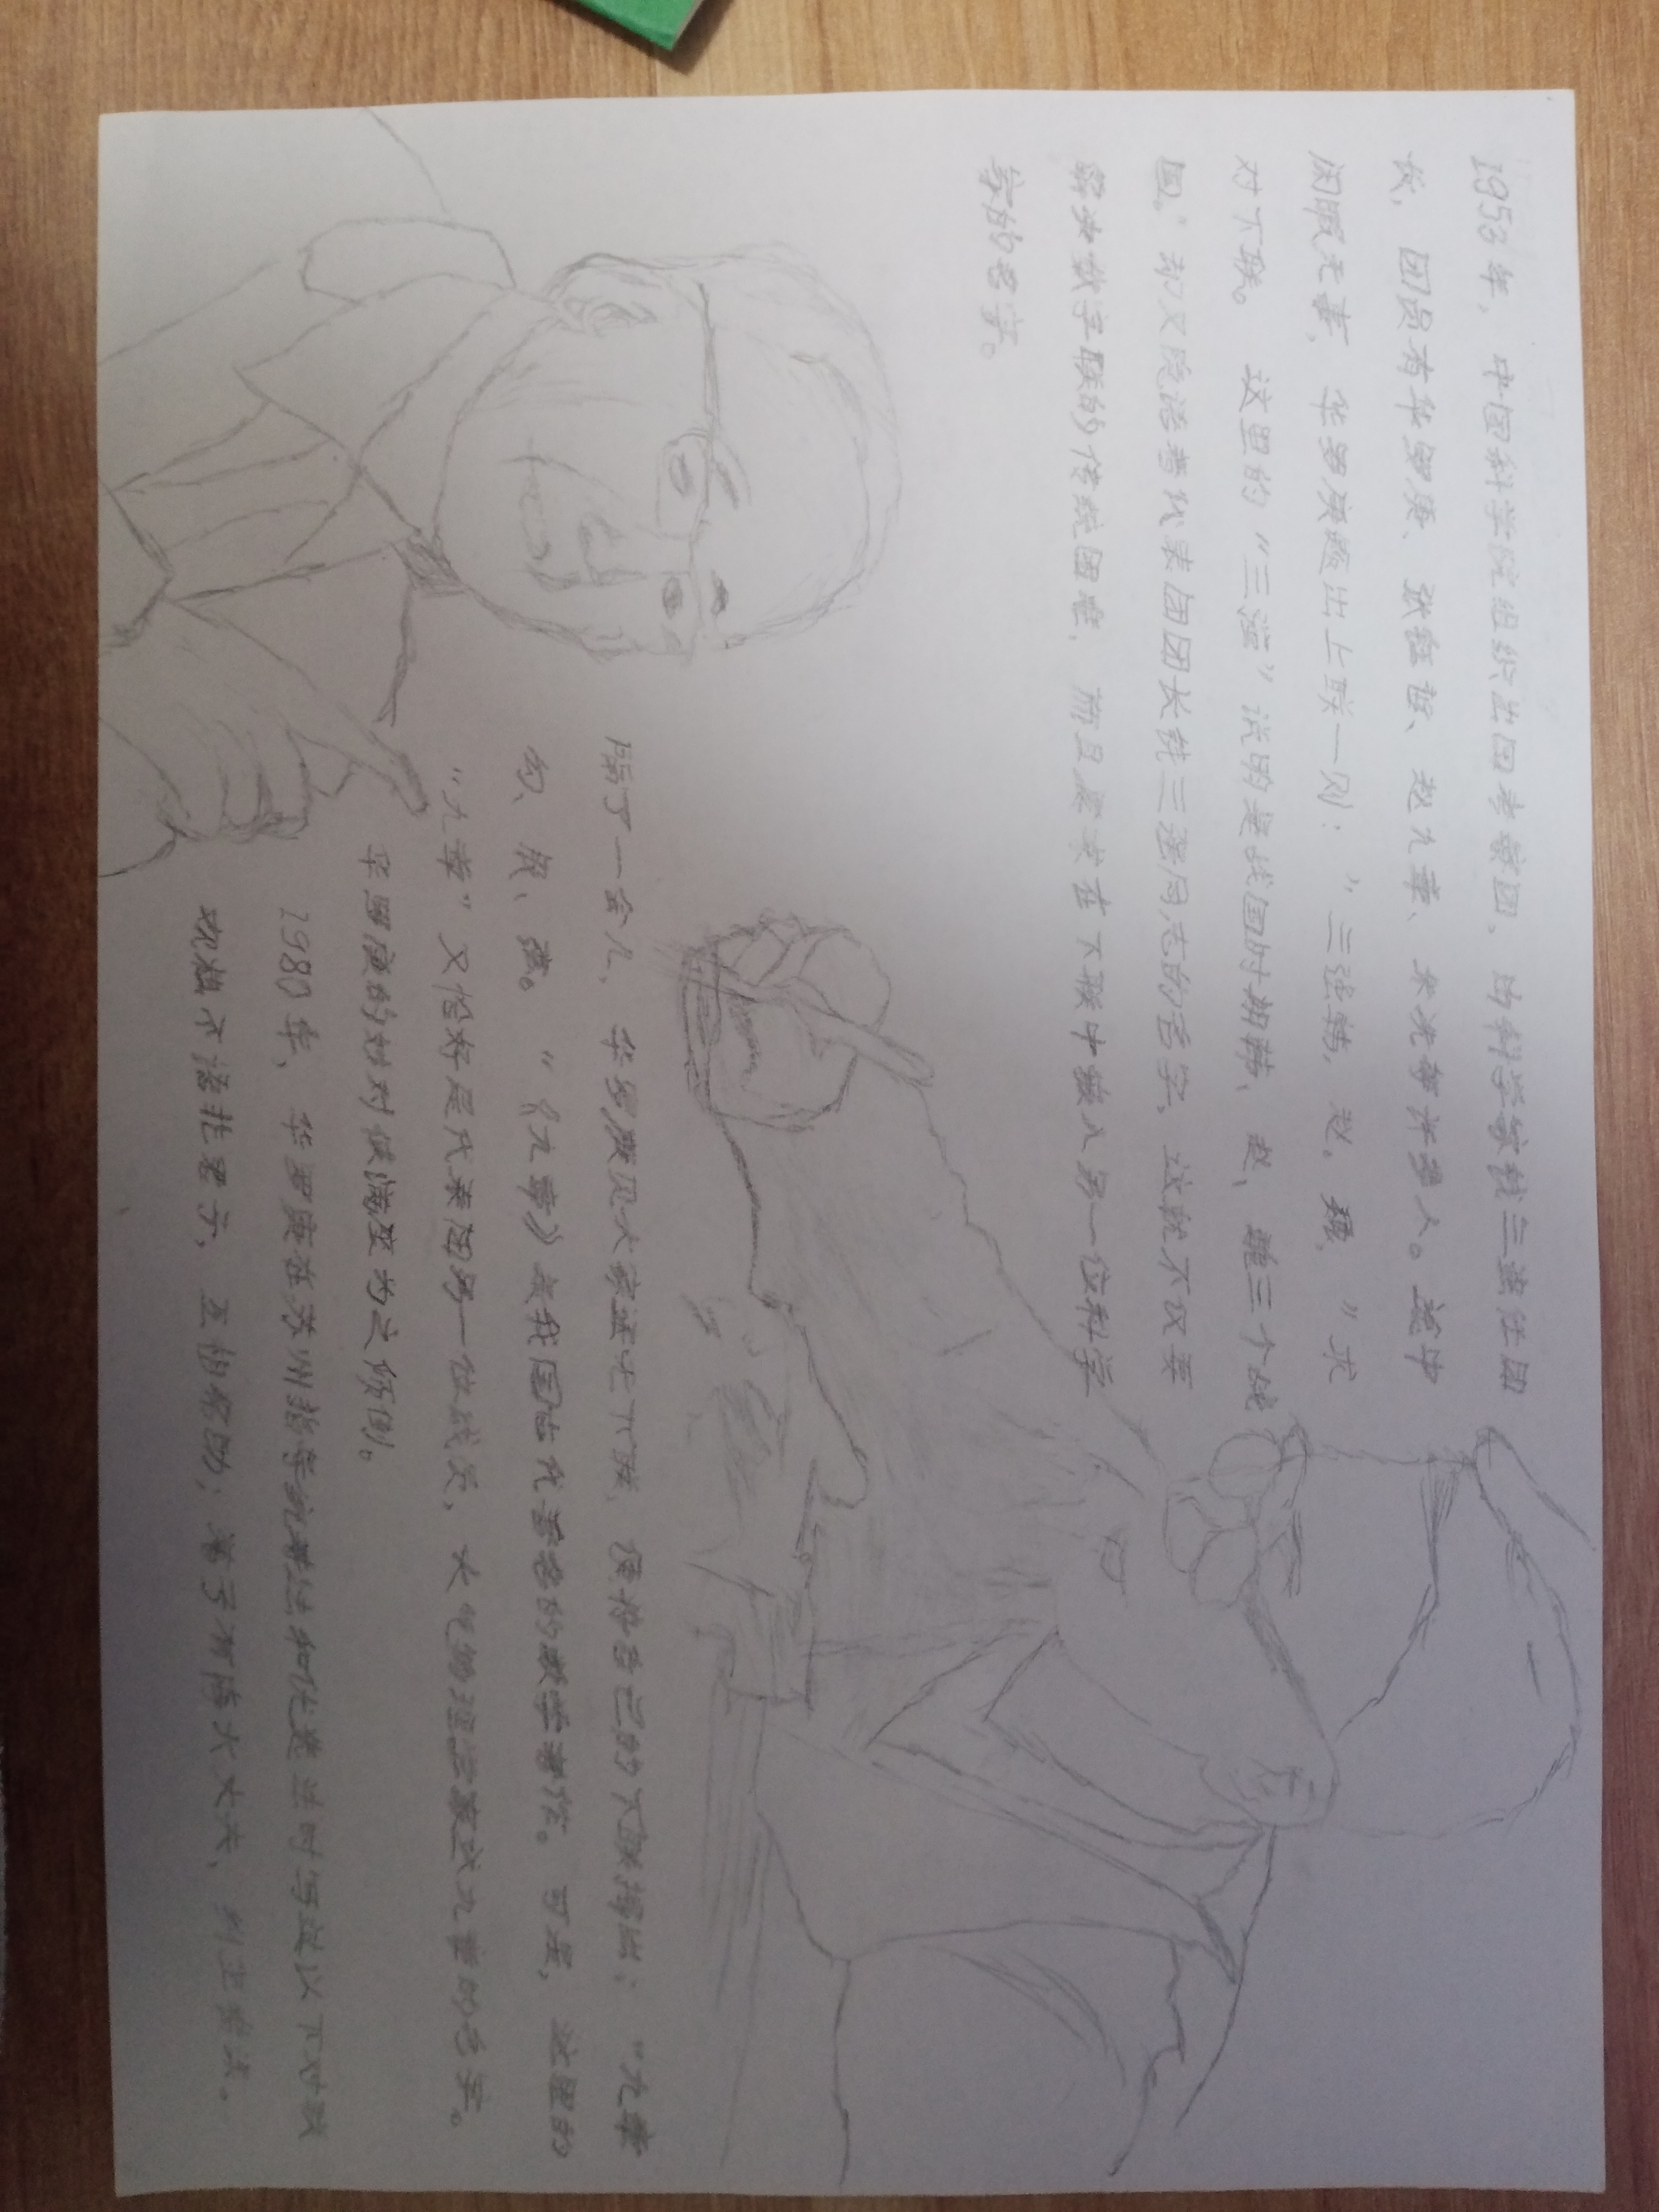 1953年，中国科学院组织出国考察团，由科学家钱三强任团
长，团员有华罗庚、张钰哲、赵九章、朱冼等许多人。途中
闲暇无事，华罗庚题出上联一则：”三强韩，赵。魏，”求
对下联。 这里的“三强”说明是战国时期韩、赵、魏三个战
国。却又隐语着代表团团长钱三强同志的名字，这就不仅要
解决数字联的传统困难，而且要求在下联中嵌入另一位科学
家的名字。
隔了一会儿，华罗庚见大家还无下联，便将自己的下联揭出：“九章
勾、股、弦。“《九章》是我国古代著名的数学著作。可是，这里的
“九章”又恰好是代表团另一位成员，大气物理学家赵九章的名字。
华罗庚的妙对使满座为之倾倒。
1980年，华罗庚在苏州指导统筹法和优选法时写过以下对联
观棋不语非君子，互相帮助；落子有悔大丈夫，纠正错误。